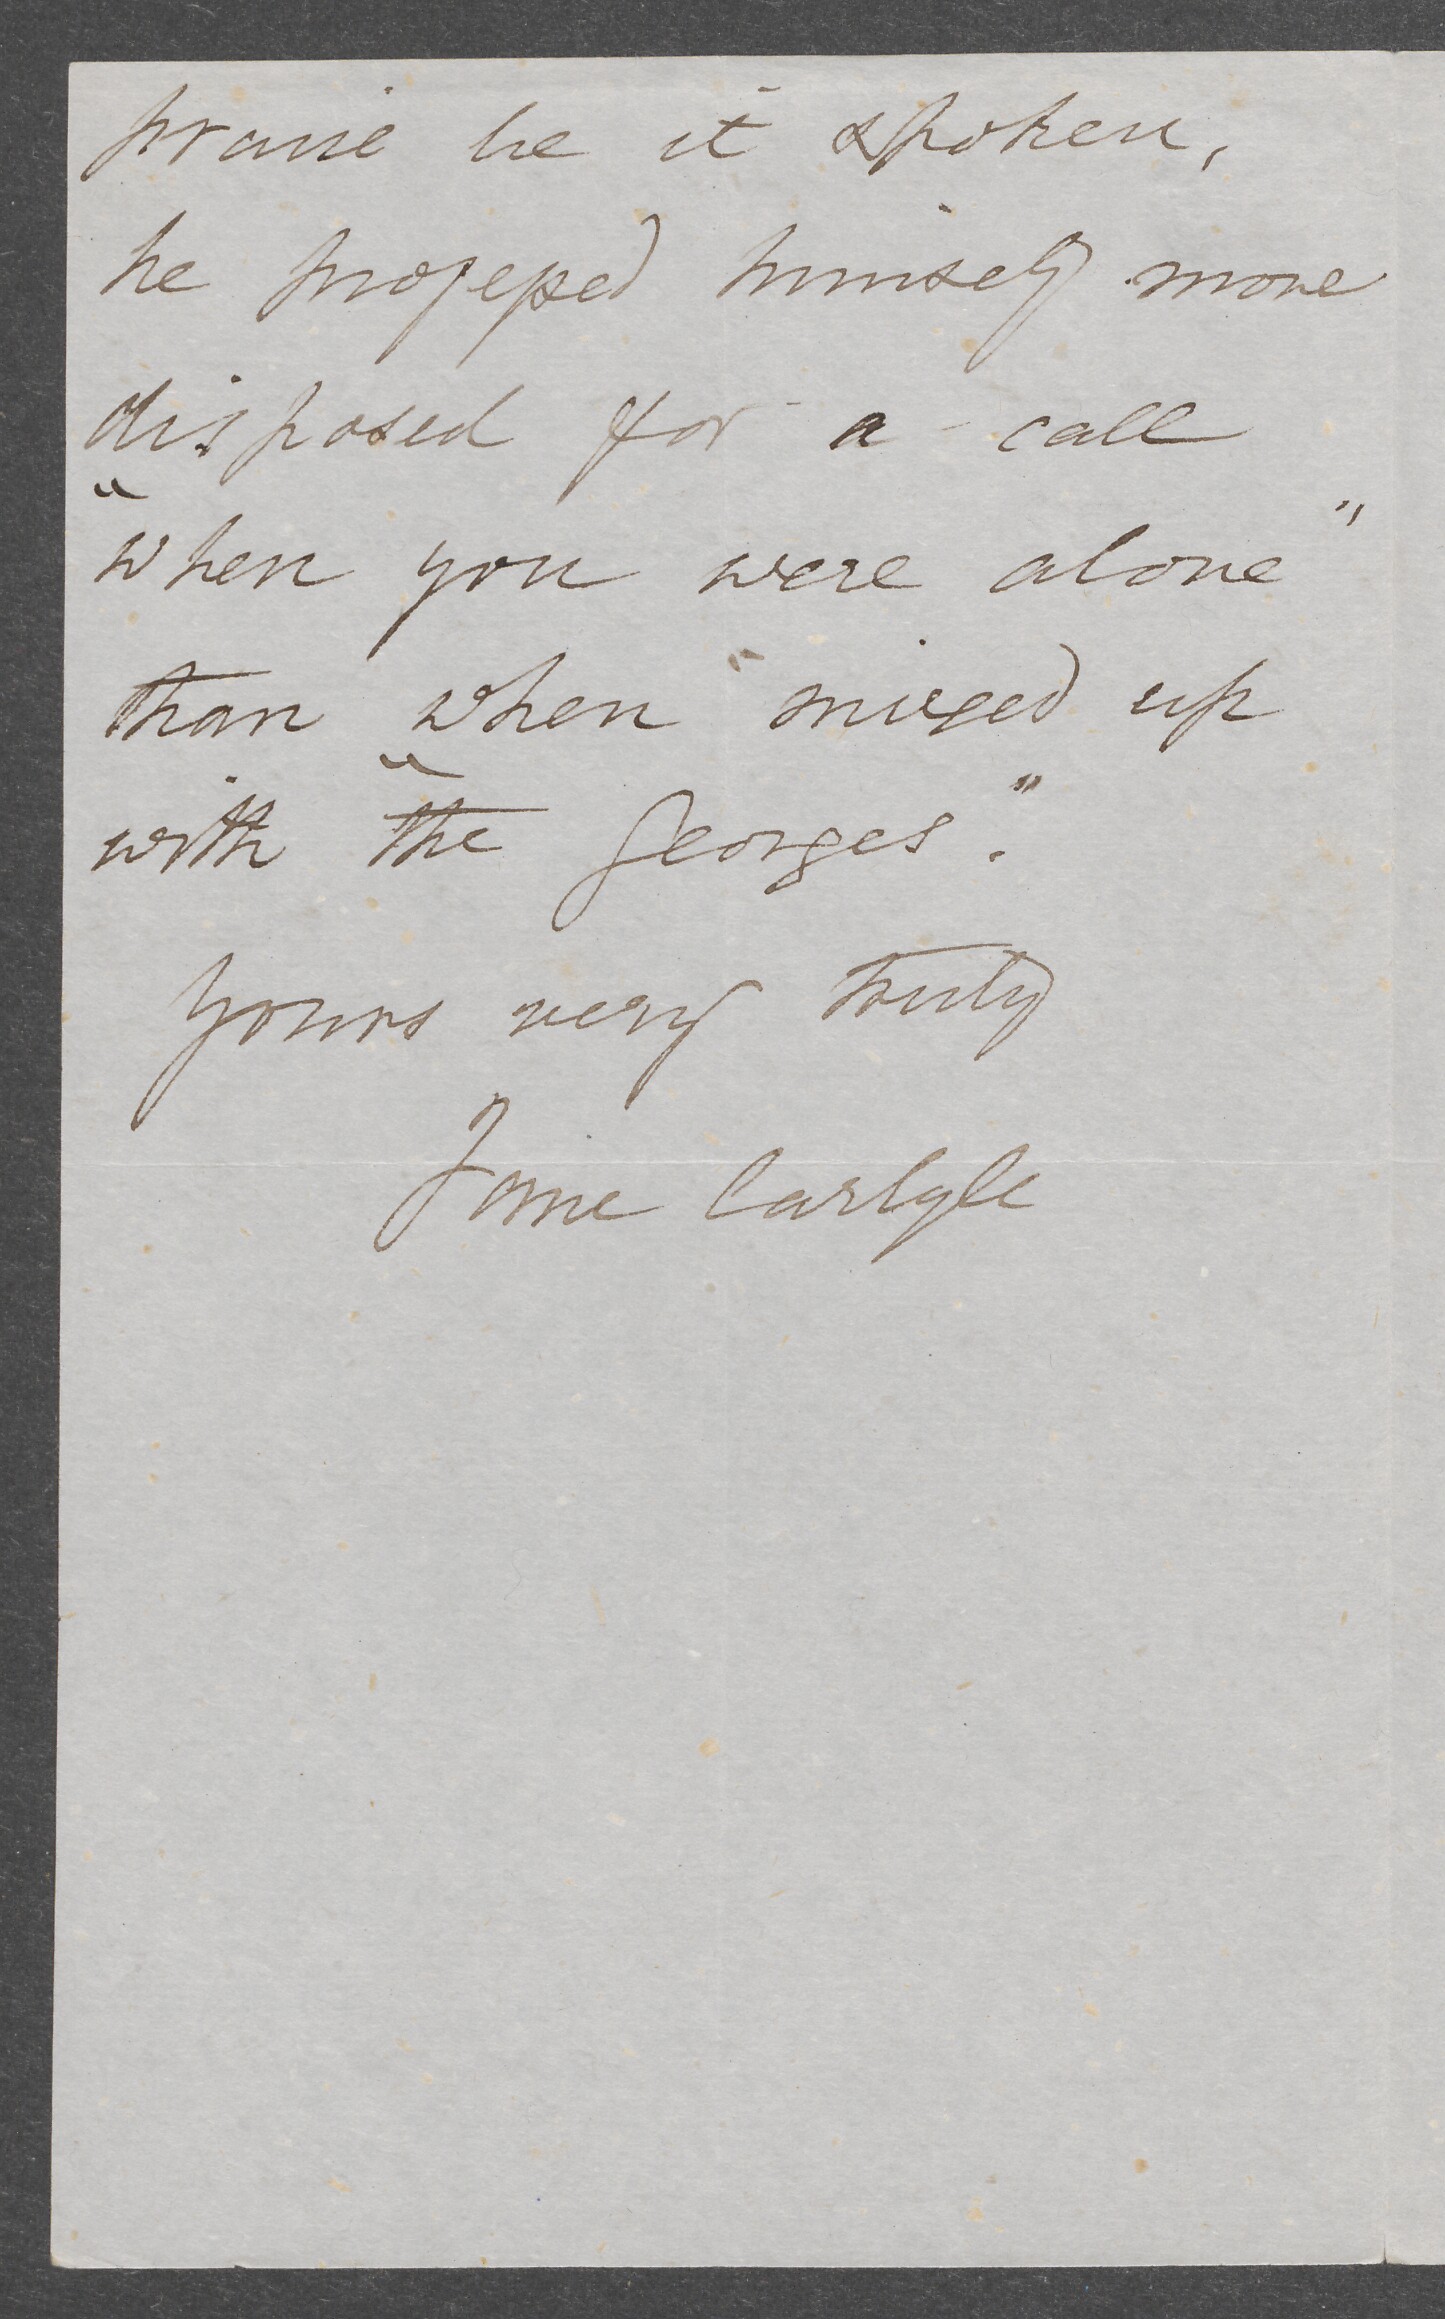 praise be it spoken,
he professed himself more
disposed for a call
"when you were alone"
than when "mixed up
with "the Georges."
Yours very truly
Jane Carlyle